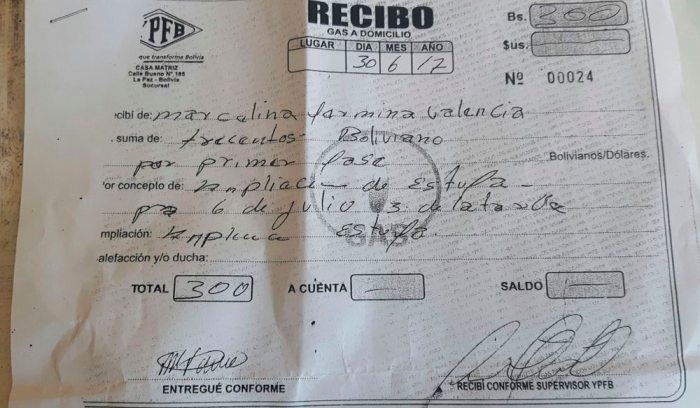 YPFB
que transforma Bolivia
CASA MATRIZ
Calle Bueno Nº 185
La Paz - Bolivia
Sucursal
RECIBO
GAS A DOMICILIO
LUGAR DIA MES AÑO
30 6 17
Bs. 300
$us.
Nº 00024
ecibí de: marcalina farmina Valencia
suma de: trecentos Boliviano
por primer fase Bolivianos/Dólares.
or concepto de: Ampliacion de Estufa
6 de julio 3 de la tarde
mpliación: Estufa
GAS
alefacción y/o ducha:
TOTAL 300 A CUENTA — SALDO —
ENTREGUÉ CONFORME
RECIBÍ CONFORME SUPERVISOR YPFB